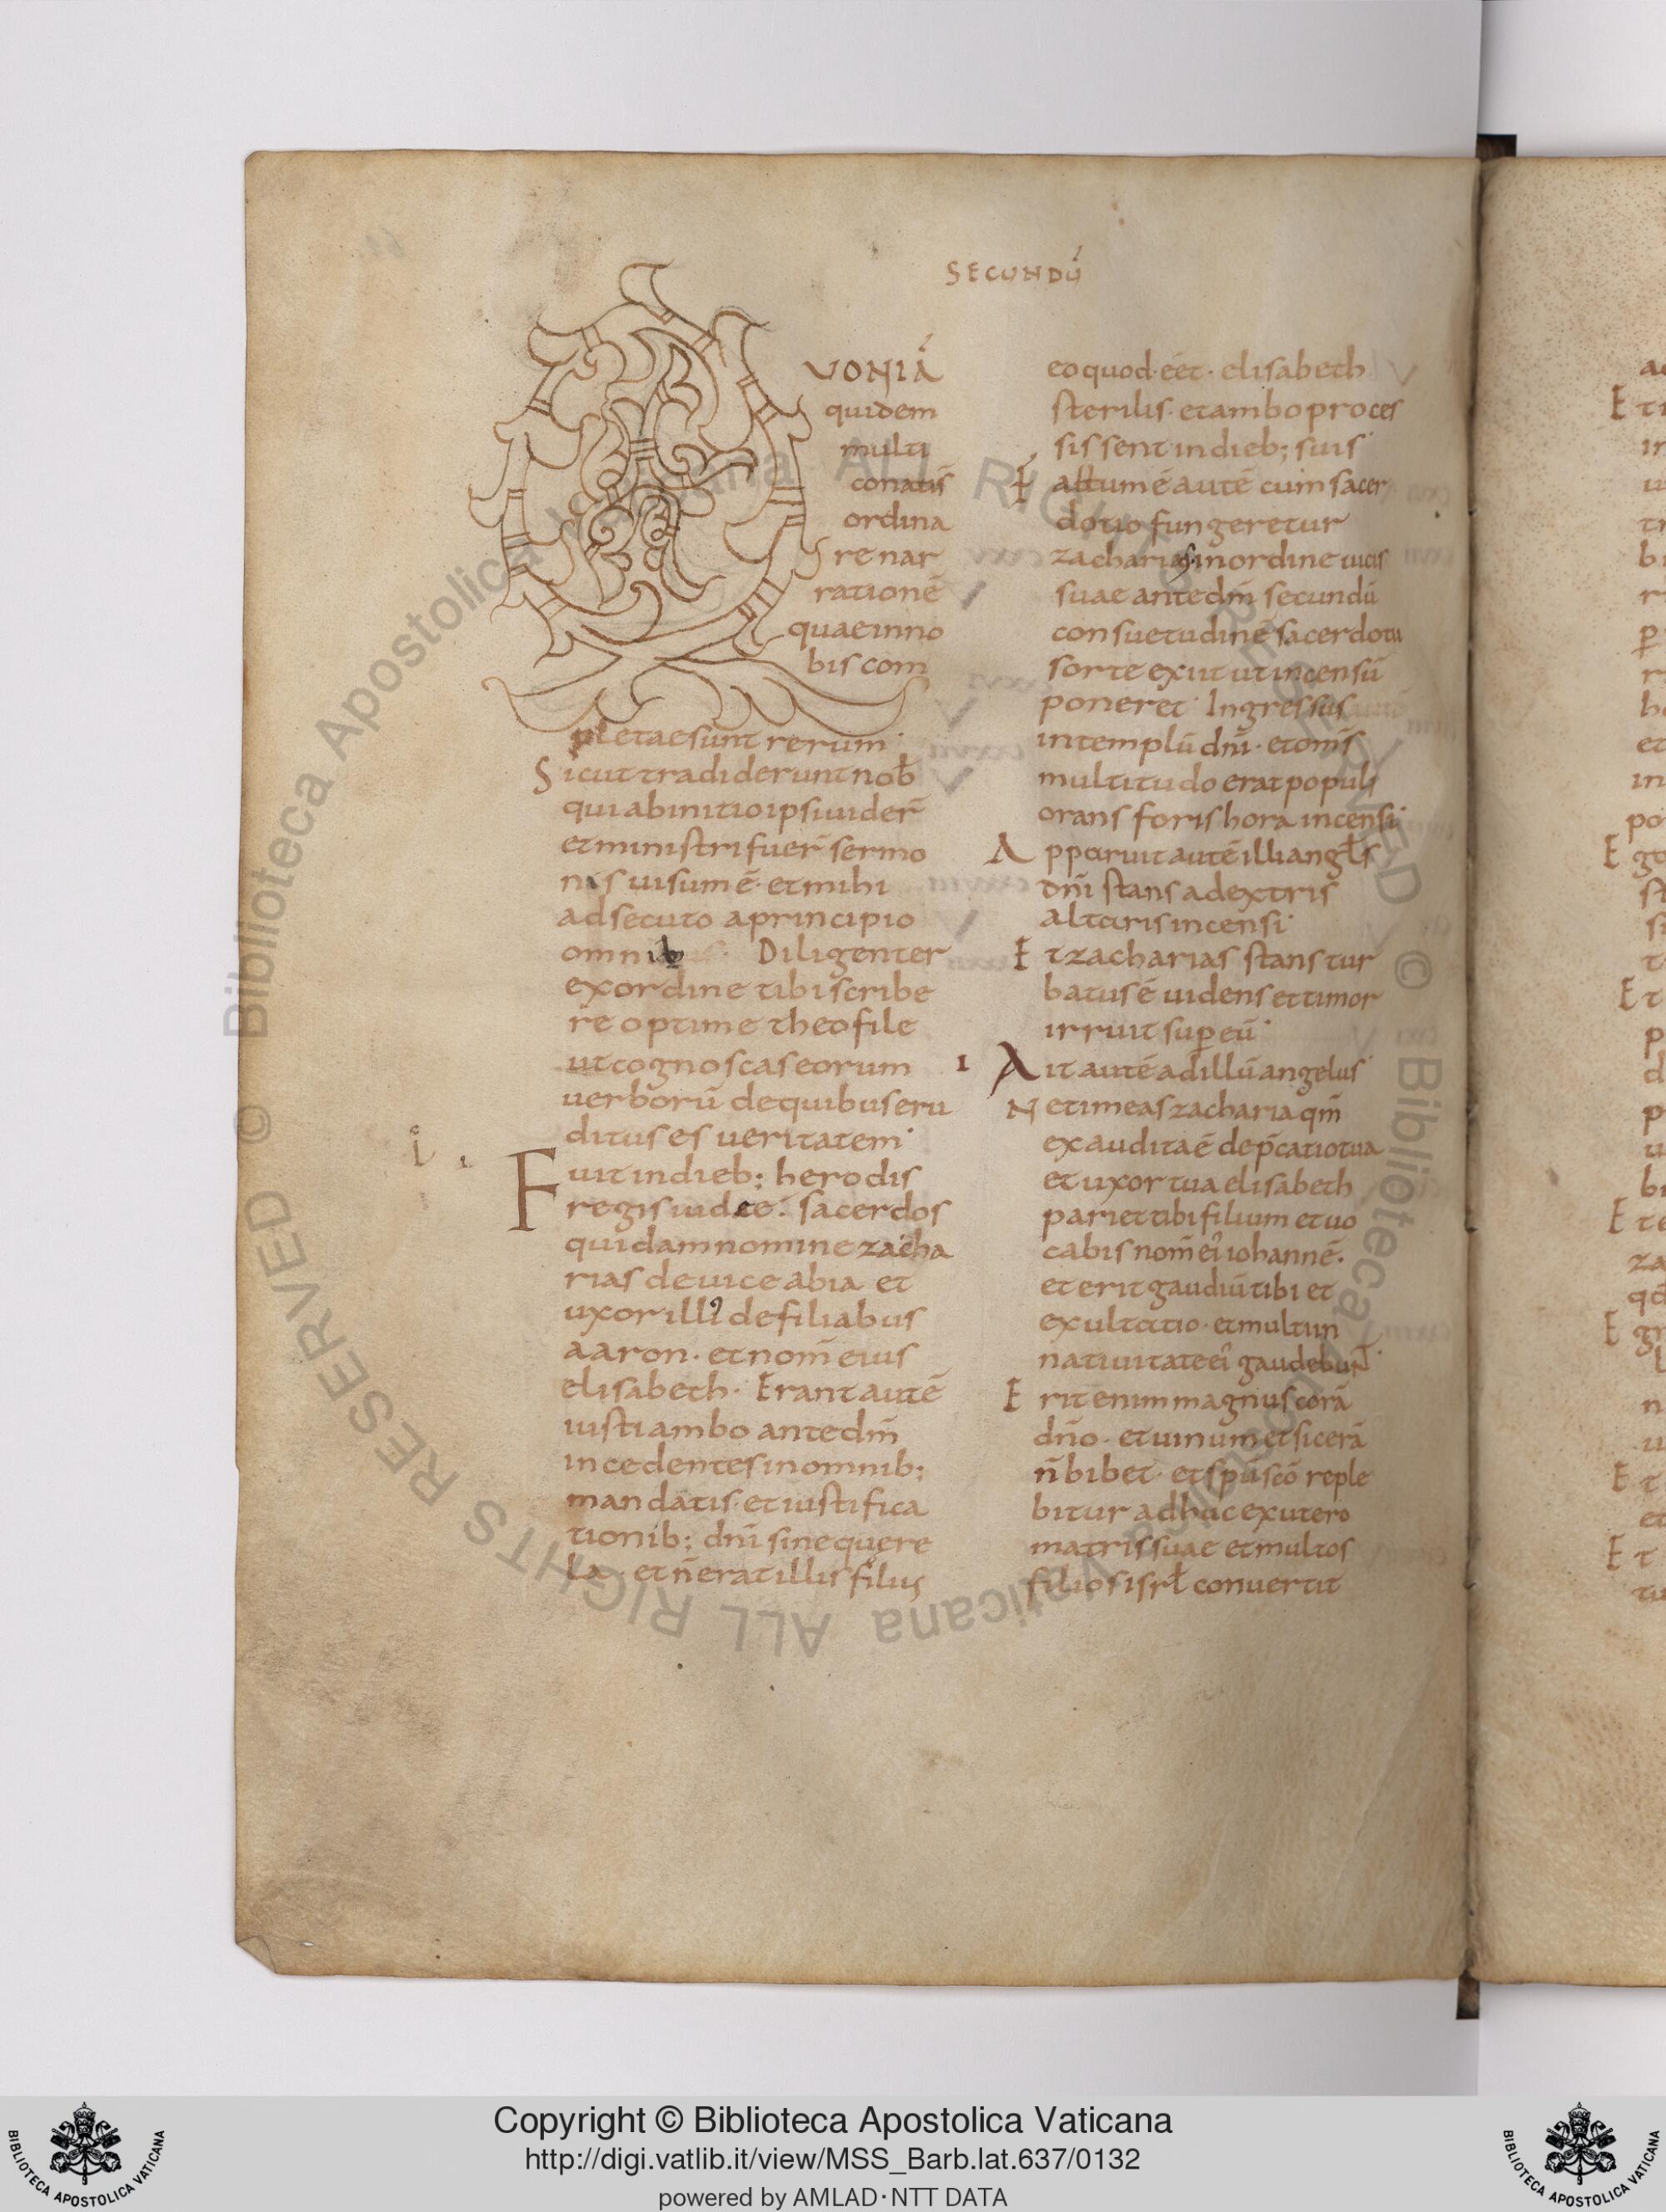 SECUNDŪ
QUONIĀ
quidem
multi
conatis̄
ordina
re nar
rationē
quaeinno
bis com
pletaesunt rerum·
Sicuttradideruntnob̄
quiabinitioipsiuider̄
etministrifuer̄ sermo
nis uisum ē· etmihi
adsecuto aprincipio
omnib· Diligenter
exordine tibiscribe
re optime theofile
utcognoscaseorum
uerborū dequibuseru
dituses ueritatem·
i. ı
Fuitindieb; herodis
regisiudee· sacerdos
quidamnomine zacha
rias deuice abia et
uxorilli᾽ defiliabus
aaron· etnom̄ eius
elisabeth· Erantautē
iustiambo antedm̄
incedentesinomnib;
mandatis· etiustifica
tionib; dn̄i sinequere
la· etn̄eratillisfilius
eoquod·eēt· elisabeth
sterilis· etamboproces
sissentindieb; suis·
Factumēautē cumsacer
dotiofungeretur
zachariasinordineuicis
suae antedm̄ secundū
consuetudinēsacerdotii
sorte exiit utincensū
poneret· Ingressus
intemplū dn̄i· etom̄s
multitudo eratpopuli
orans forishora incensi·
Apparuitautēilliangl̄s
dn̄i stans adextris
altarisincensi·
Etzacharias stanstur
batusē uidensettimor
irruitsup̄eū·
ı
Aitautēadillūangelus·
Netimeaszachariaqm̄
exauditaē dep̄catiotua
etuxor tua elisabeth
pariettibifilium etuo
cabis nom̄ei᾽ iohannē·
eteritgaudiūtibi et
exultatio· etmultiin
natiuitateei᾽ gaudebunt̄·
Eritenimmagnuscorā
dn̄o· etuinumetsicerā
n̄bibet· etspūscō reple
bitur adhucexutero
matrissuae etmultos
filiosisrl̄ conuertit
Copyright © Biblioteca Apostolica Vaticana
http://digi.vatlib.it/view/MSS_Barb.lat.637/0132
powered by AMLAD·NTT DATA
BIBLIOTECA APOSTOLICA VATICANA
BIBLIOTECA APOSTOLICA VATICANA
© Biblioteca Apostolica Vaticana ALL RIGHTS RESERVED © Biblioteca Apostolica Vaticana ALL RIGHTS RESERVED